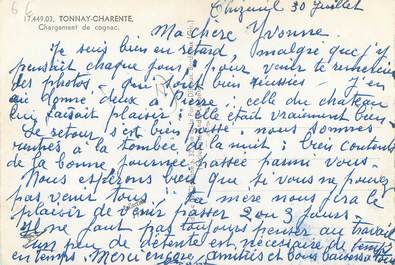 17.449.03. TONNAY-CHARENTE.
Chargement de cognac.
Thézeuil 30 Juillet
Ma chère Yvonne.
Je suis bien en retard, malgré que j'y
pensait chaque jour, pour venir te remercier
des photos, qui sont bien réussies - j'en
ai donné deux à Pierre; celle du chateau
lui faisait plaisir; elle était vraiment bien-
Le retour s'est bien passé. nous sommes
rentrés à la tombée de la nuit; biens contents
de la bonne journée passée parmi vous-
Nous espérons bien que si vous ne pouvez
pas venir tous, ta mère nous fera le
plaisir de venir passer 2 ou 3 jours-
Il ne faut pas toujours penser au travail
un peu de détente est nécessaire de temps
en temps. Merci encore, amitiés et bons baisers à tous